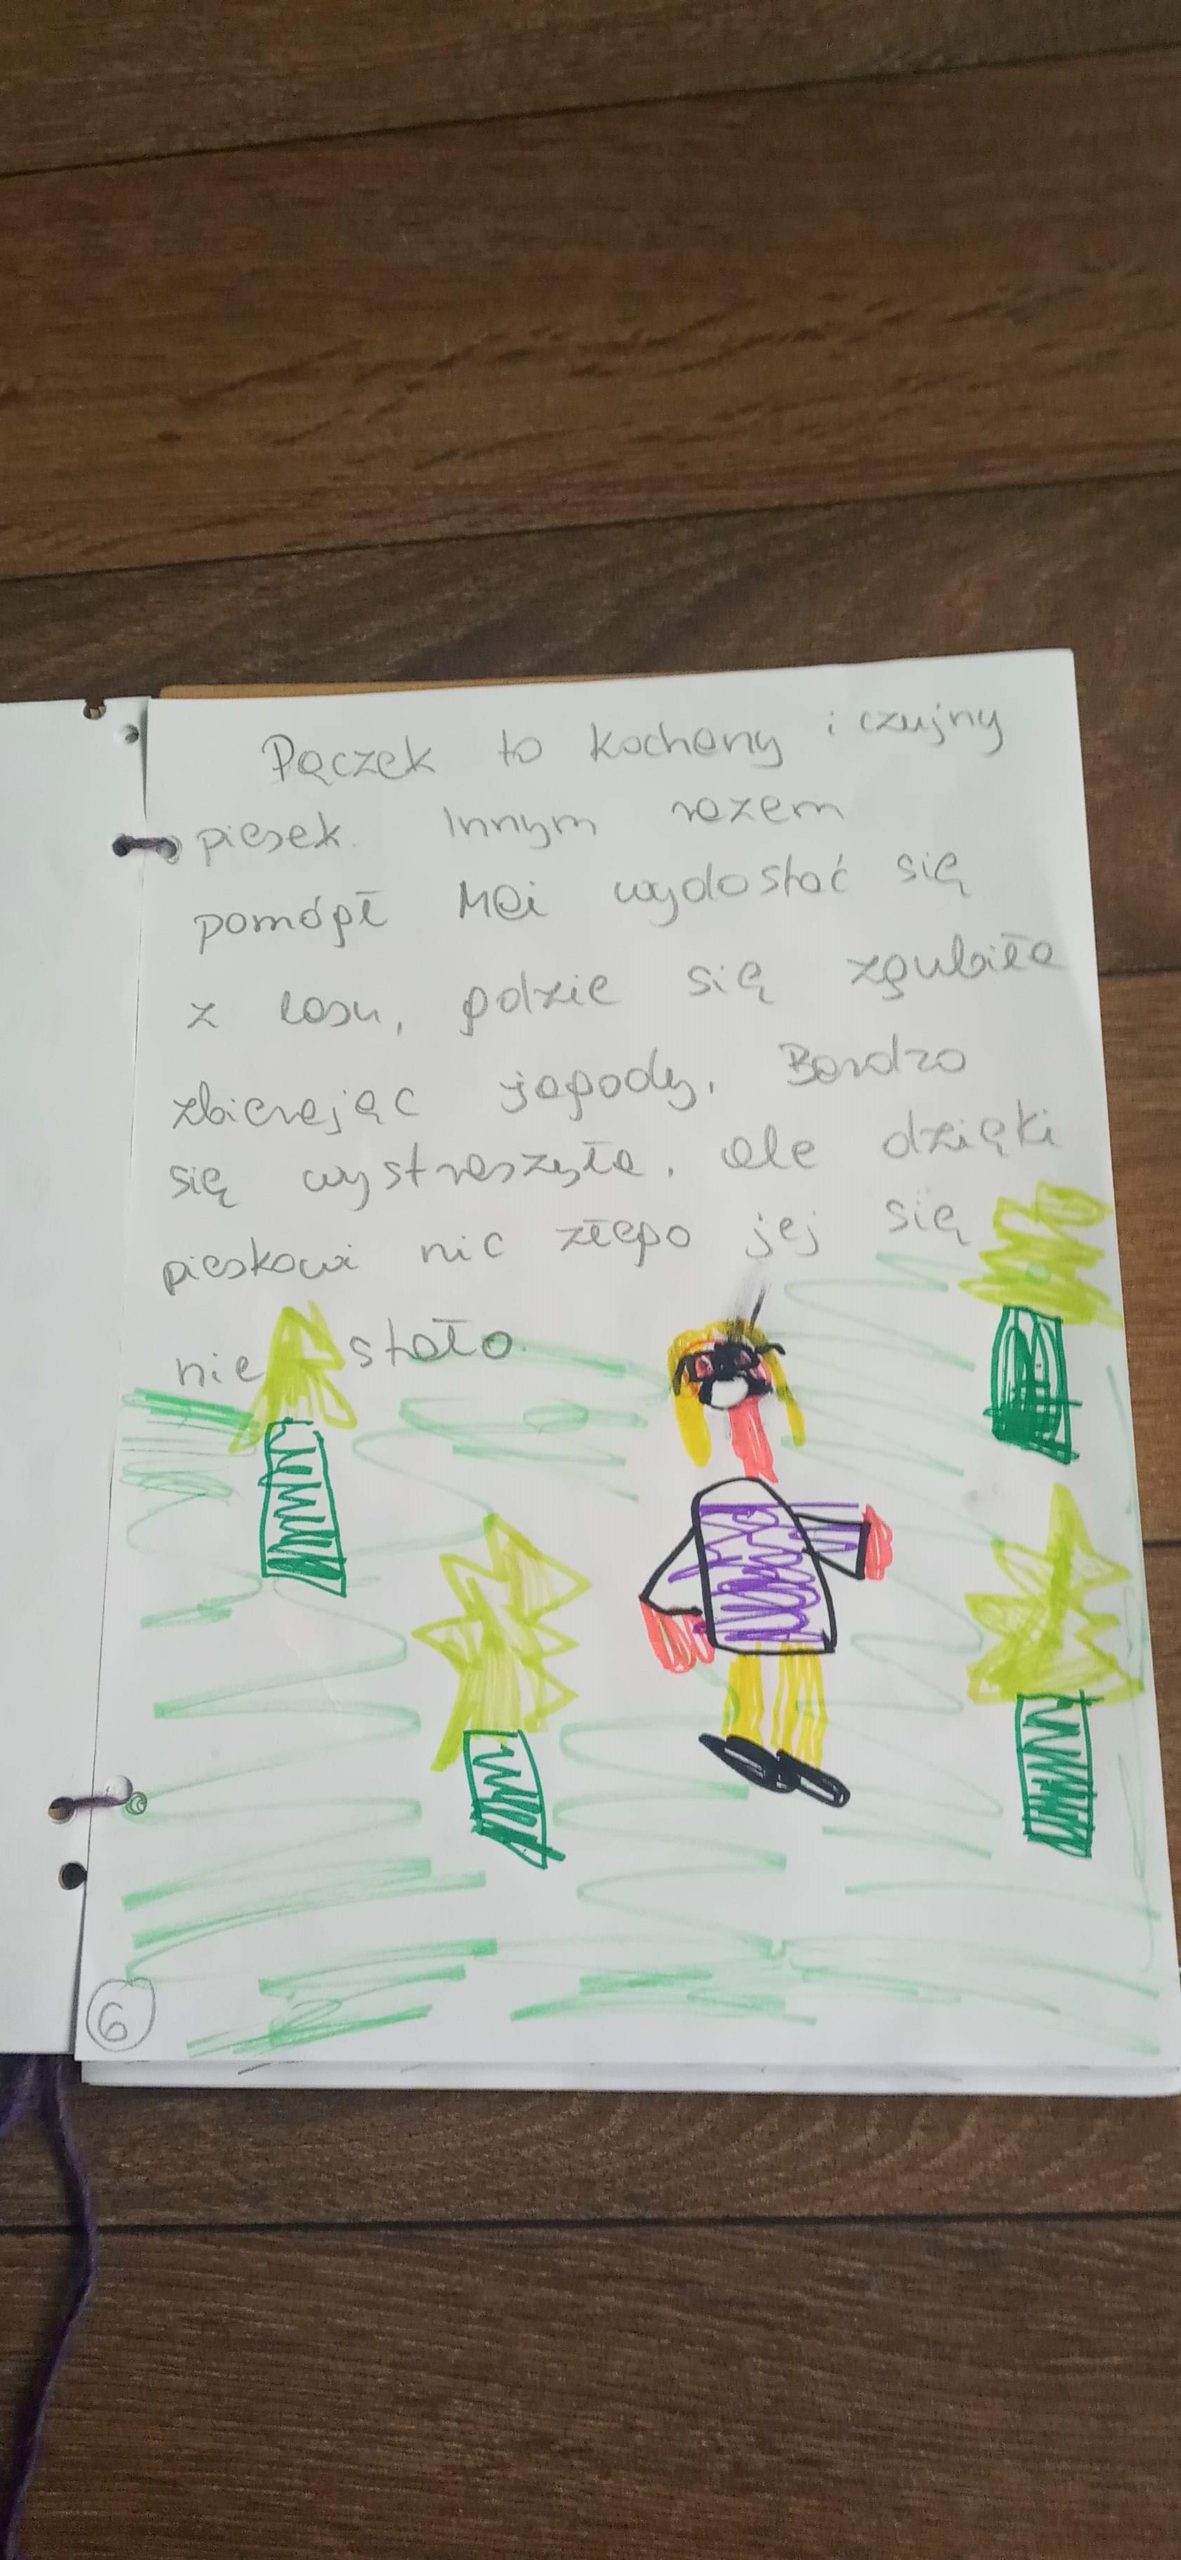 Pączek to kochany i czujny
piesek. Innym razem
pomógł Mai wydostać się
z lasu, gdzie się zgubiła
zbierając jagody. Bardzo
się wystraszyła, ale dzięki
pieskowi nic złego jej się
nie stało.
6